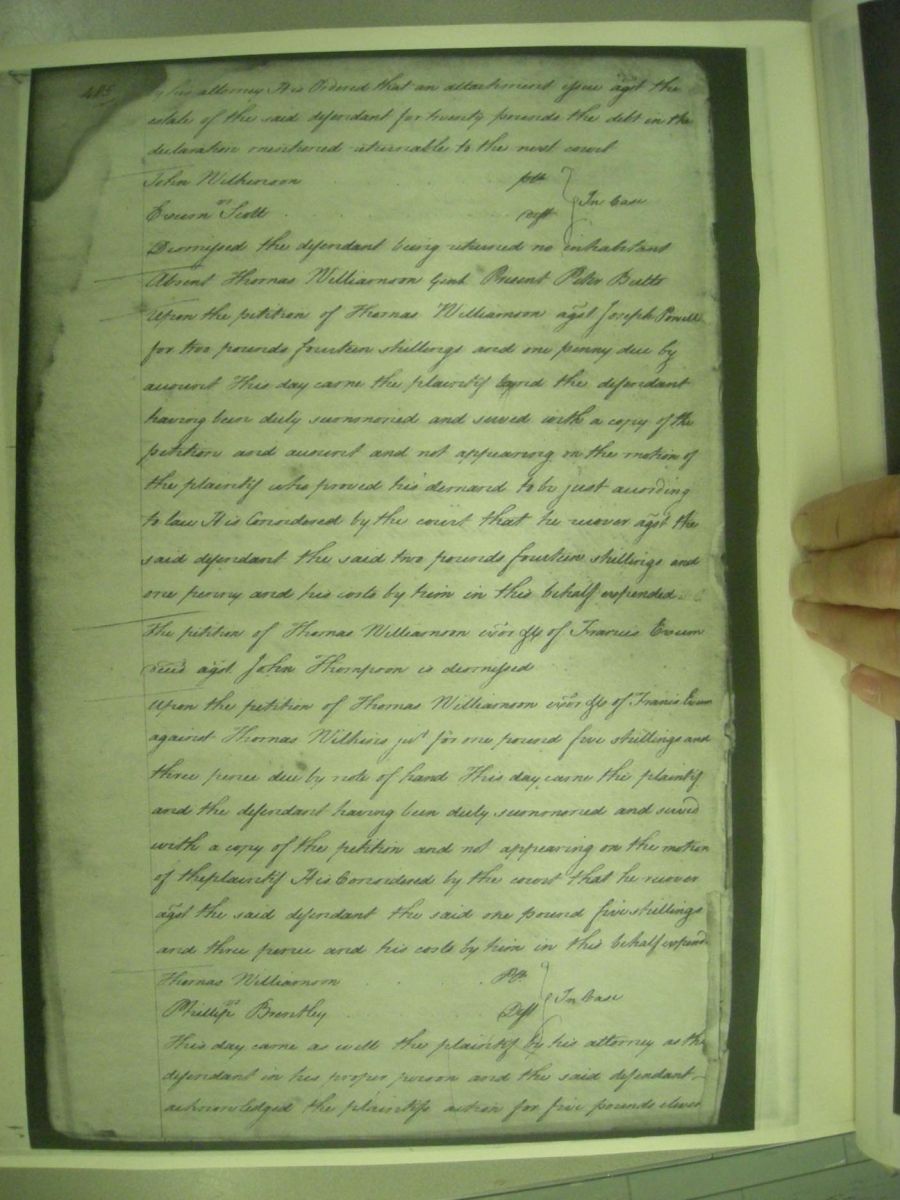 485
by his attorney It is Ordered that an attachment issue agst the
estate of the said defendant for twenty pounds the debt in the
declaration mentioned returnable to the next court
John Wilkinson pltf
vs In Case
Exum Scott Deft
Dismissed the defendant being returned no inhabitant
Absent Thomas Williamson Gent Present Peter Butts
Upon the petition of Thomas Williamson agst Joseph Powell
for two pounds fourteen shillings and one penny due by
account This day came the plaintif and the defendant
having been duly summoned and served with a copy of the
petition and account and not appearing on the motion of
the plaintif who proved his demand to be just according
to law It is Considered by the court that he recover agst the
said defendant the said two pounds fourteen shillings and
one penny and his costs by him in this behalf expended
The petition of Thomas Williamson exor &c of Francis Exum
decd agst John Thompson is dismissed
Upon the petition of Thomas Williamson exor &c of Francis Exum
against Thomas Wilkins junr for one pound five shillings and
three pence due by note of hand This day came the plaintif
and the defendant having been duly summoned and served
with a copy of the petition and not appearing on the motion
of the plaintif It is Considered by the court that he recover
agst the said defendant the said one pound five shillings
and three pence and his costs by him in this behalf expend
Thomas Williamson Plt
vs In Case
Phillip Brentley Deft
This day came as well the plaintif by his attorney as the
defendant in his proper person and the said defendant
acknowledged the plaintifs action for five pounds eleven